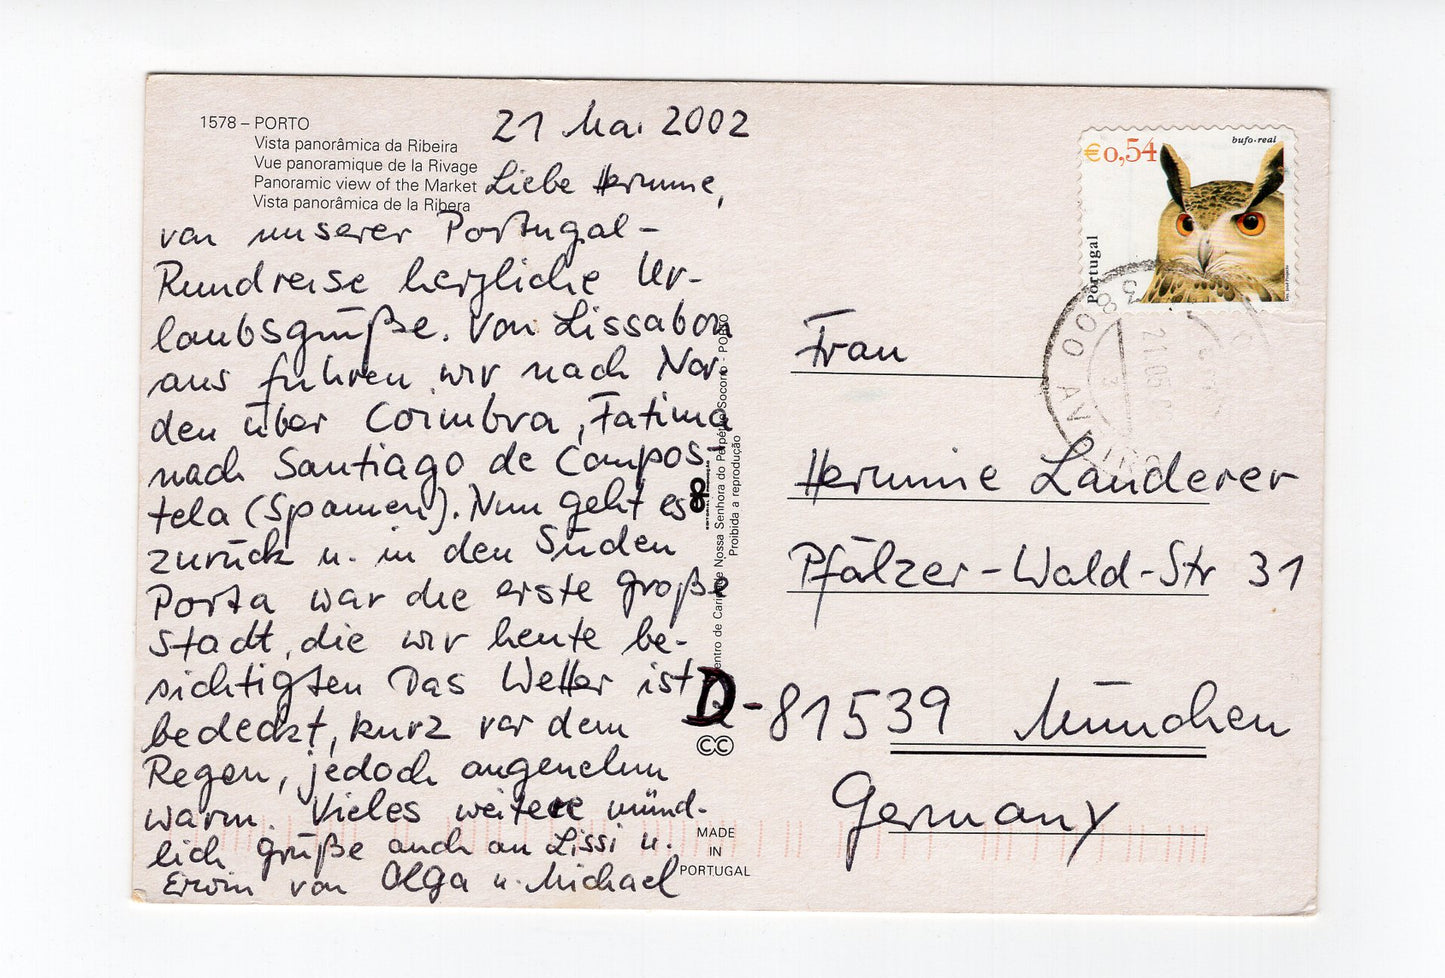 1578 – PORTO
Vista panorâmica da Ribeira
Vue panoramique de la Rivage
Panoramic view of the Market
Vista panorâmica de la Ribera
21 Mai 2002
Liebe Hermine,
von unserer Portugal-
Rundreise herzliche Ur-
laubsgrüße. Von Lissabon
aus fuhren wir nach Nor-
den über Coimbra, Fatima
nach Santiago de Compos-
tela (Spanien). Nun geht es
zurück u. in den Süden
Porta war die erste große
Stadt, die wir heute be-
sichtigten Das Wetter ist
bedeckt, kurz vor dem
Regen, jedoch angenehm
warm. Vieles weitere münd-
lich Grüße auch an Lissi u.
Erwin von Olga u. Michael
Nossa Senhora do Perpétuo Socorro - PORTO
Proibida a reprodução
CC
MADE
IN
PORTUGAL
€0,54
bufo-real
Portugal
3800 AVEIRO
21.05
Frau
Hermine Landerer
Pfälzer-Wald-Str 31
D-81539 München
Germany